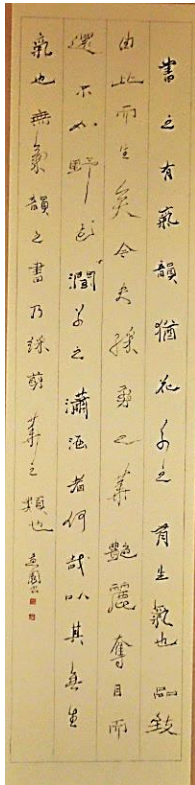 書之有氣韻猶花草之有生氣也品致
由此而生矣今夫綵剪之華艷麗奪目而
還不如野花澗草之瀟洒者何哉以其無生
氣也無氣韻之書乃綵剪華之類也